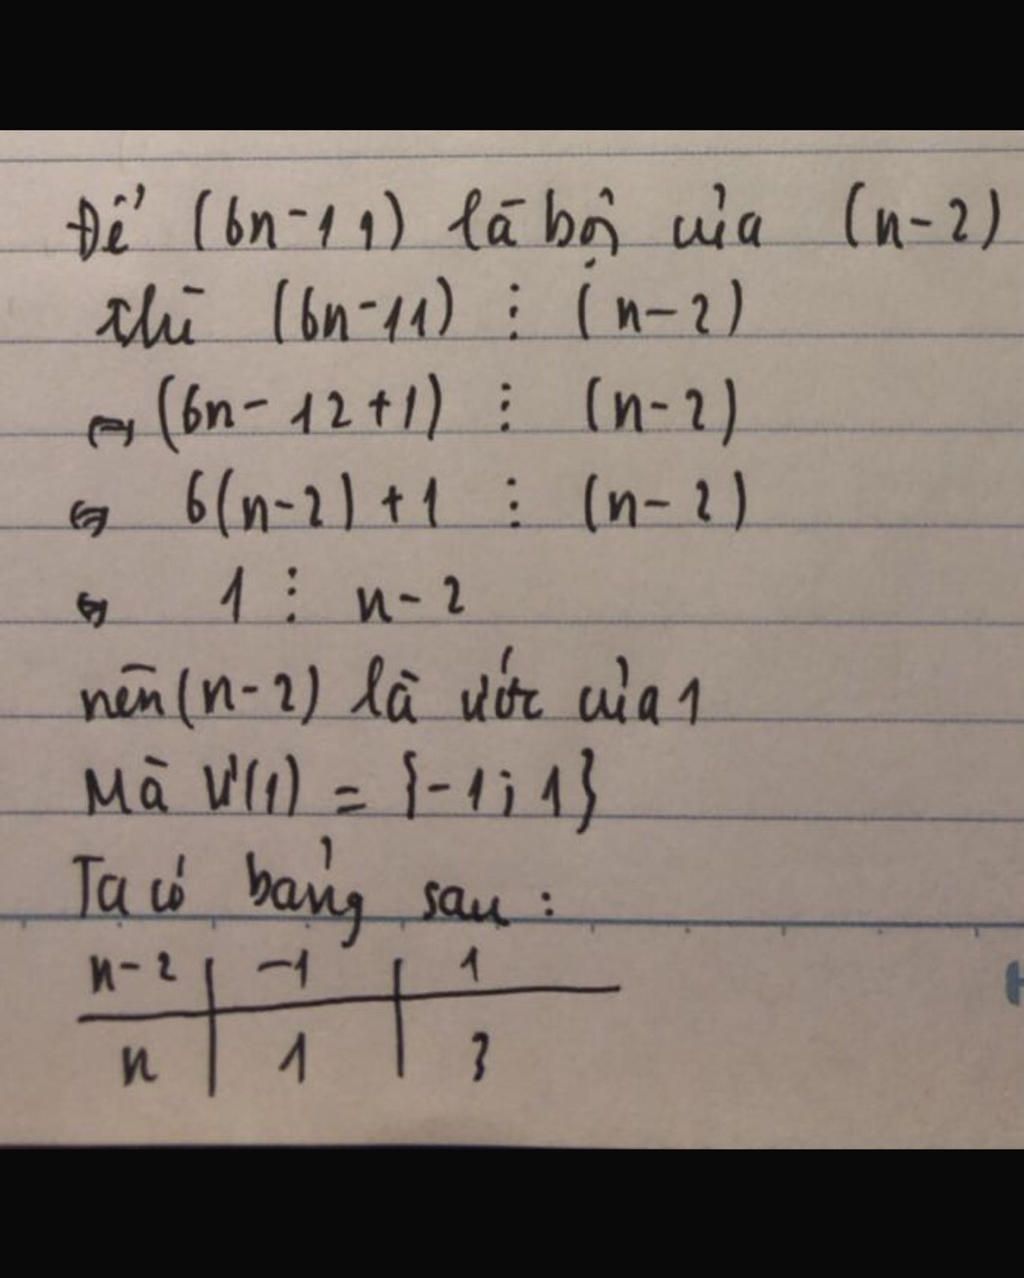 Để (6n-11) là bội của (n-2)
thì (6n-11) ⋮ (n-2)
⇔ (6n-12+1) ⋮ (n-2)
⇔ 6(n-2)+1 ⋮ (n-2)
⇔ 1 ⋮ n-2
nên (n-2) là ước của 1
Mà Ư(1) = {-1; 1}
Ta có bảng sau:
n-2 | -1 | 1
n | 1 | 3